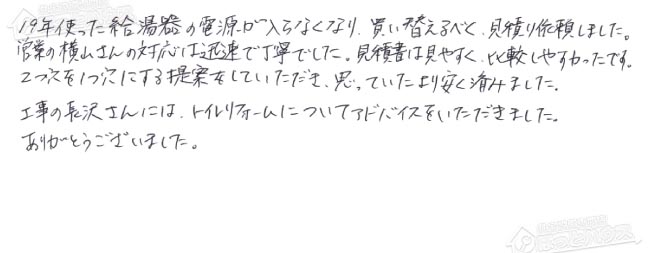 19年使った給湯器の電源が入らなくなり、買い替えるべく、見積り依頼しました。
営業の横山さんの対応は迅速で丁寧でした。見積書は見やすく、比較しやすかったです。
2つ穴を1つ穴にする提案をしていただき、思っていたより安く済みました。
工事の長沢さんには、トイレリフォームについてアドバイスをいただきました。
ありがとうございました。